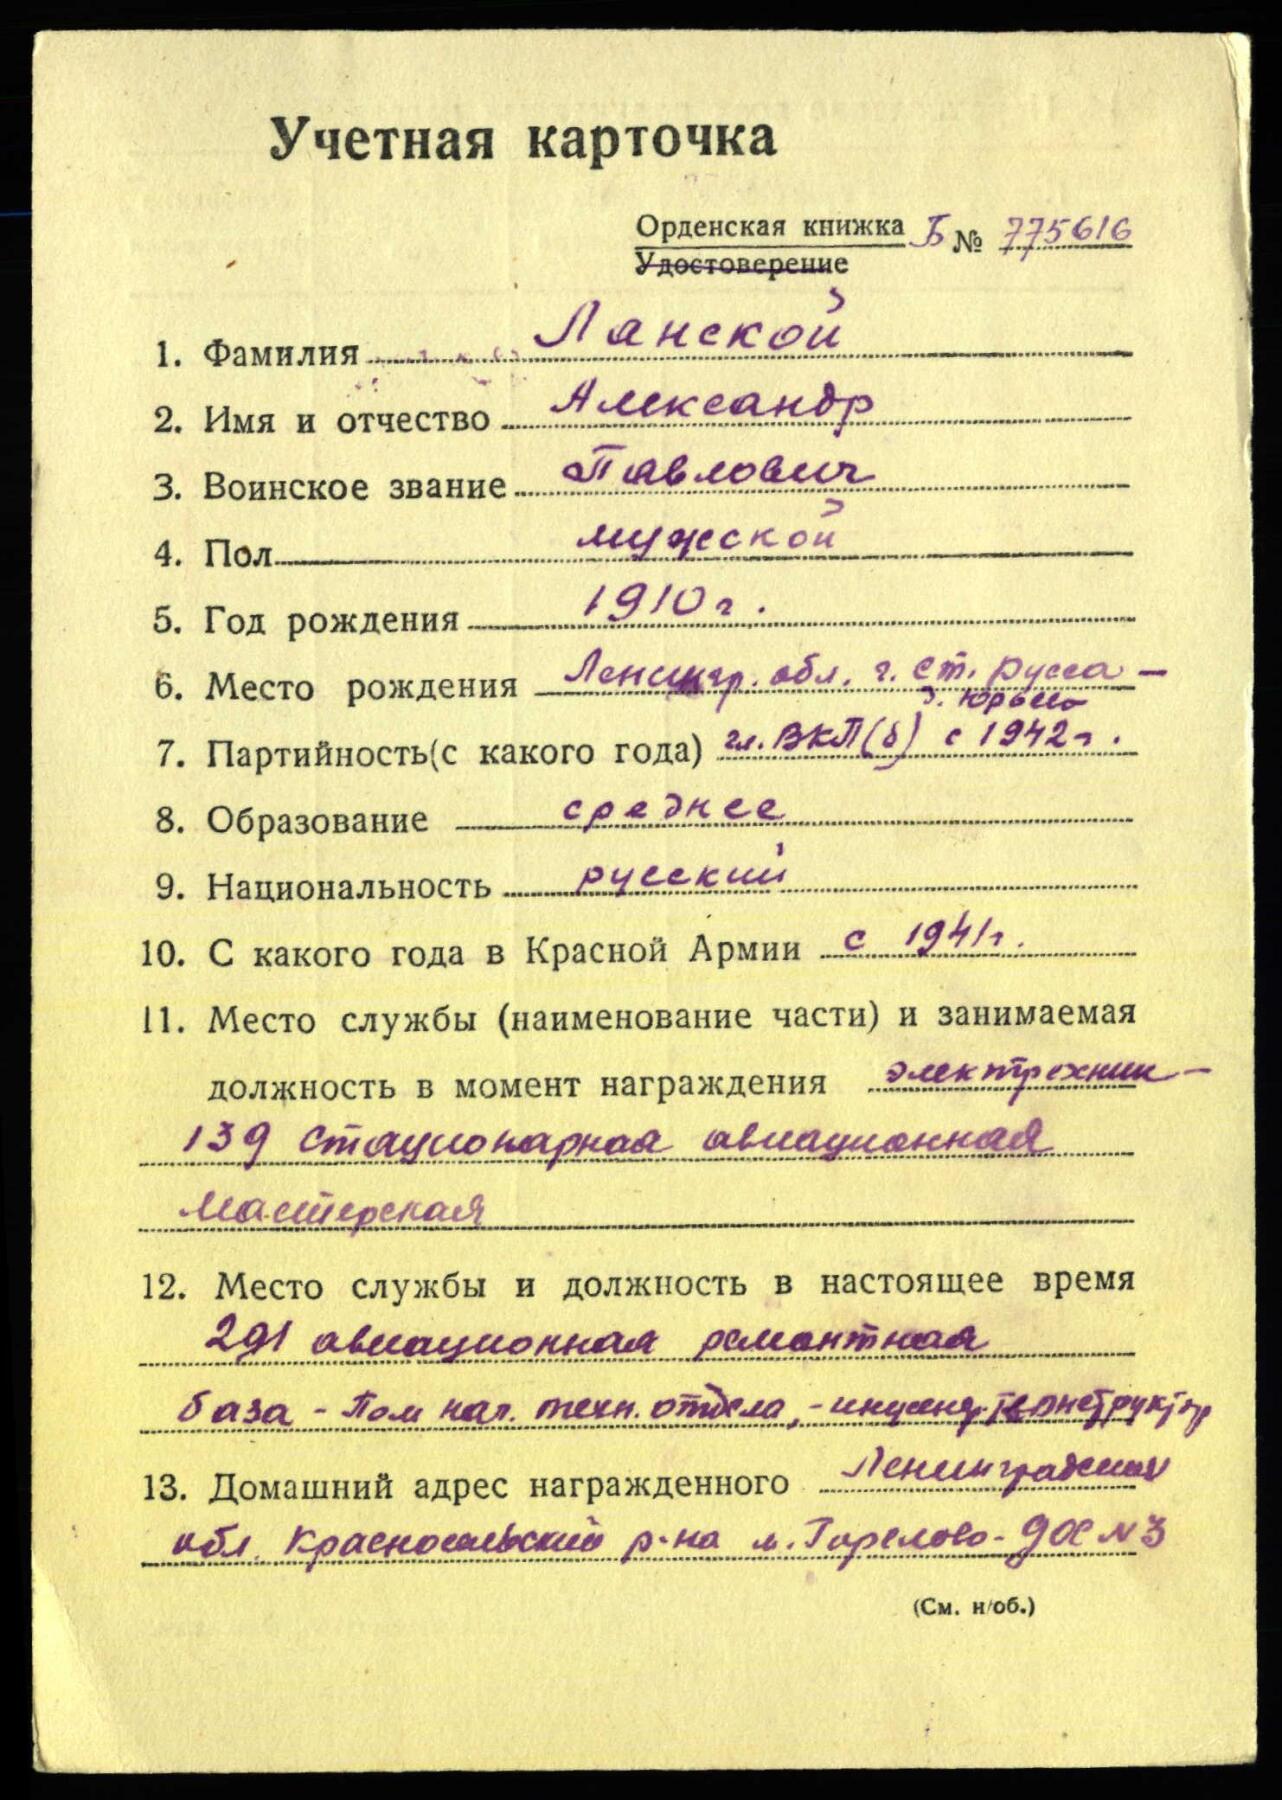 Учетная карточка
Орденская книжка Б № 775616
Удостоверение
1. Фамилия Ланской
2. Имя и отчество Александр
3. Воинское звание Павлович
4. Пол мужской
5. Год рождения 1910 г.
6. Место рождения Ленингр. обл. г. Ст. Русса –
д. Юрьево
7. Партийность (с какого года) чл. ВКП(б) с 1942 г.
8. Образование среднее
9. Национальность русский
10. С какого года в Красной Армии с 1941 г.
11. Место службы (наименование части) и занимаемая
должность в момент награждения электрехник –
139 стационарная авиационная
мастерская
12. Место службы и должность в настоящее время
291 авиационная ремонтная
база – Пом нач. техн. отдела, –
13. Домашний адрес награжденного Ленинградская
обл. Красносельский р-на п. Горелово – ДОС N 3
(См. н/об.)